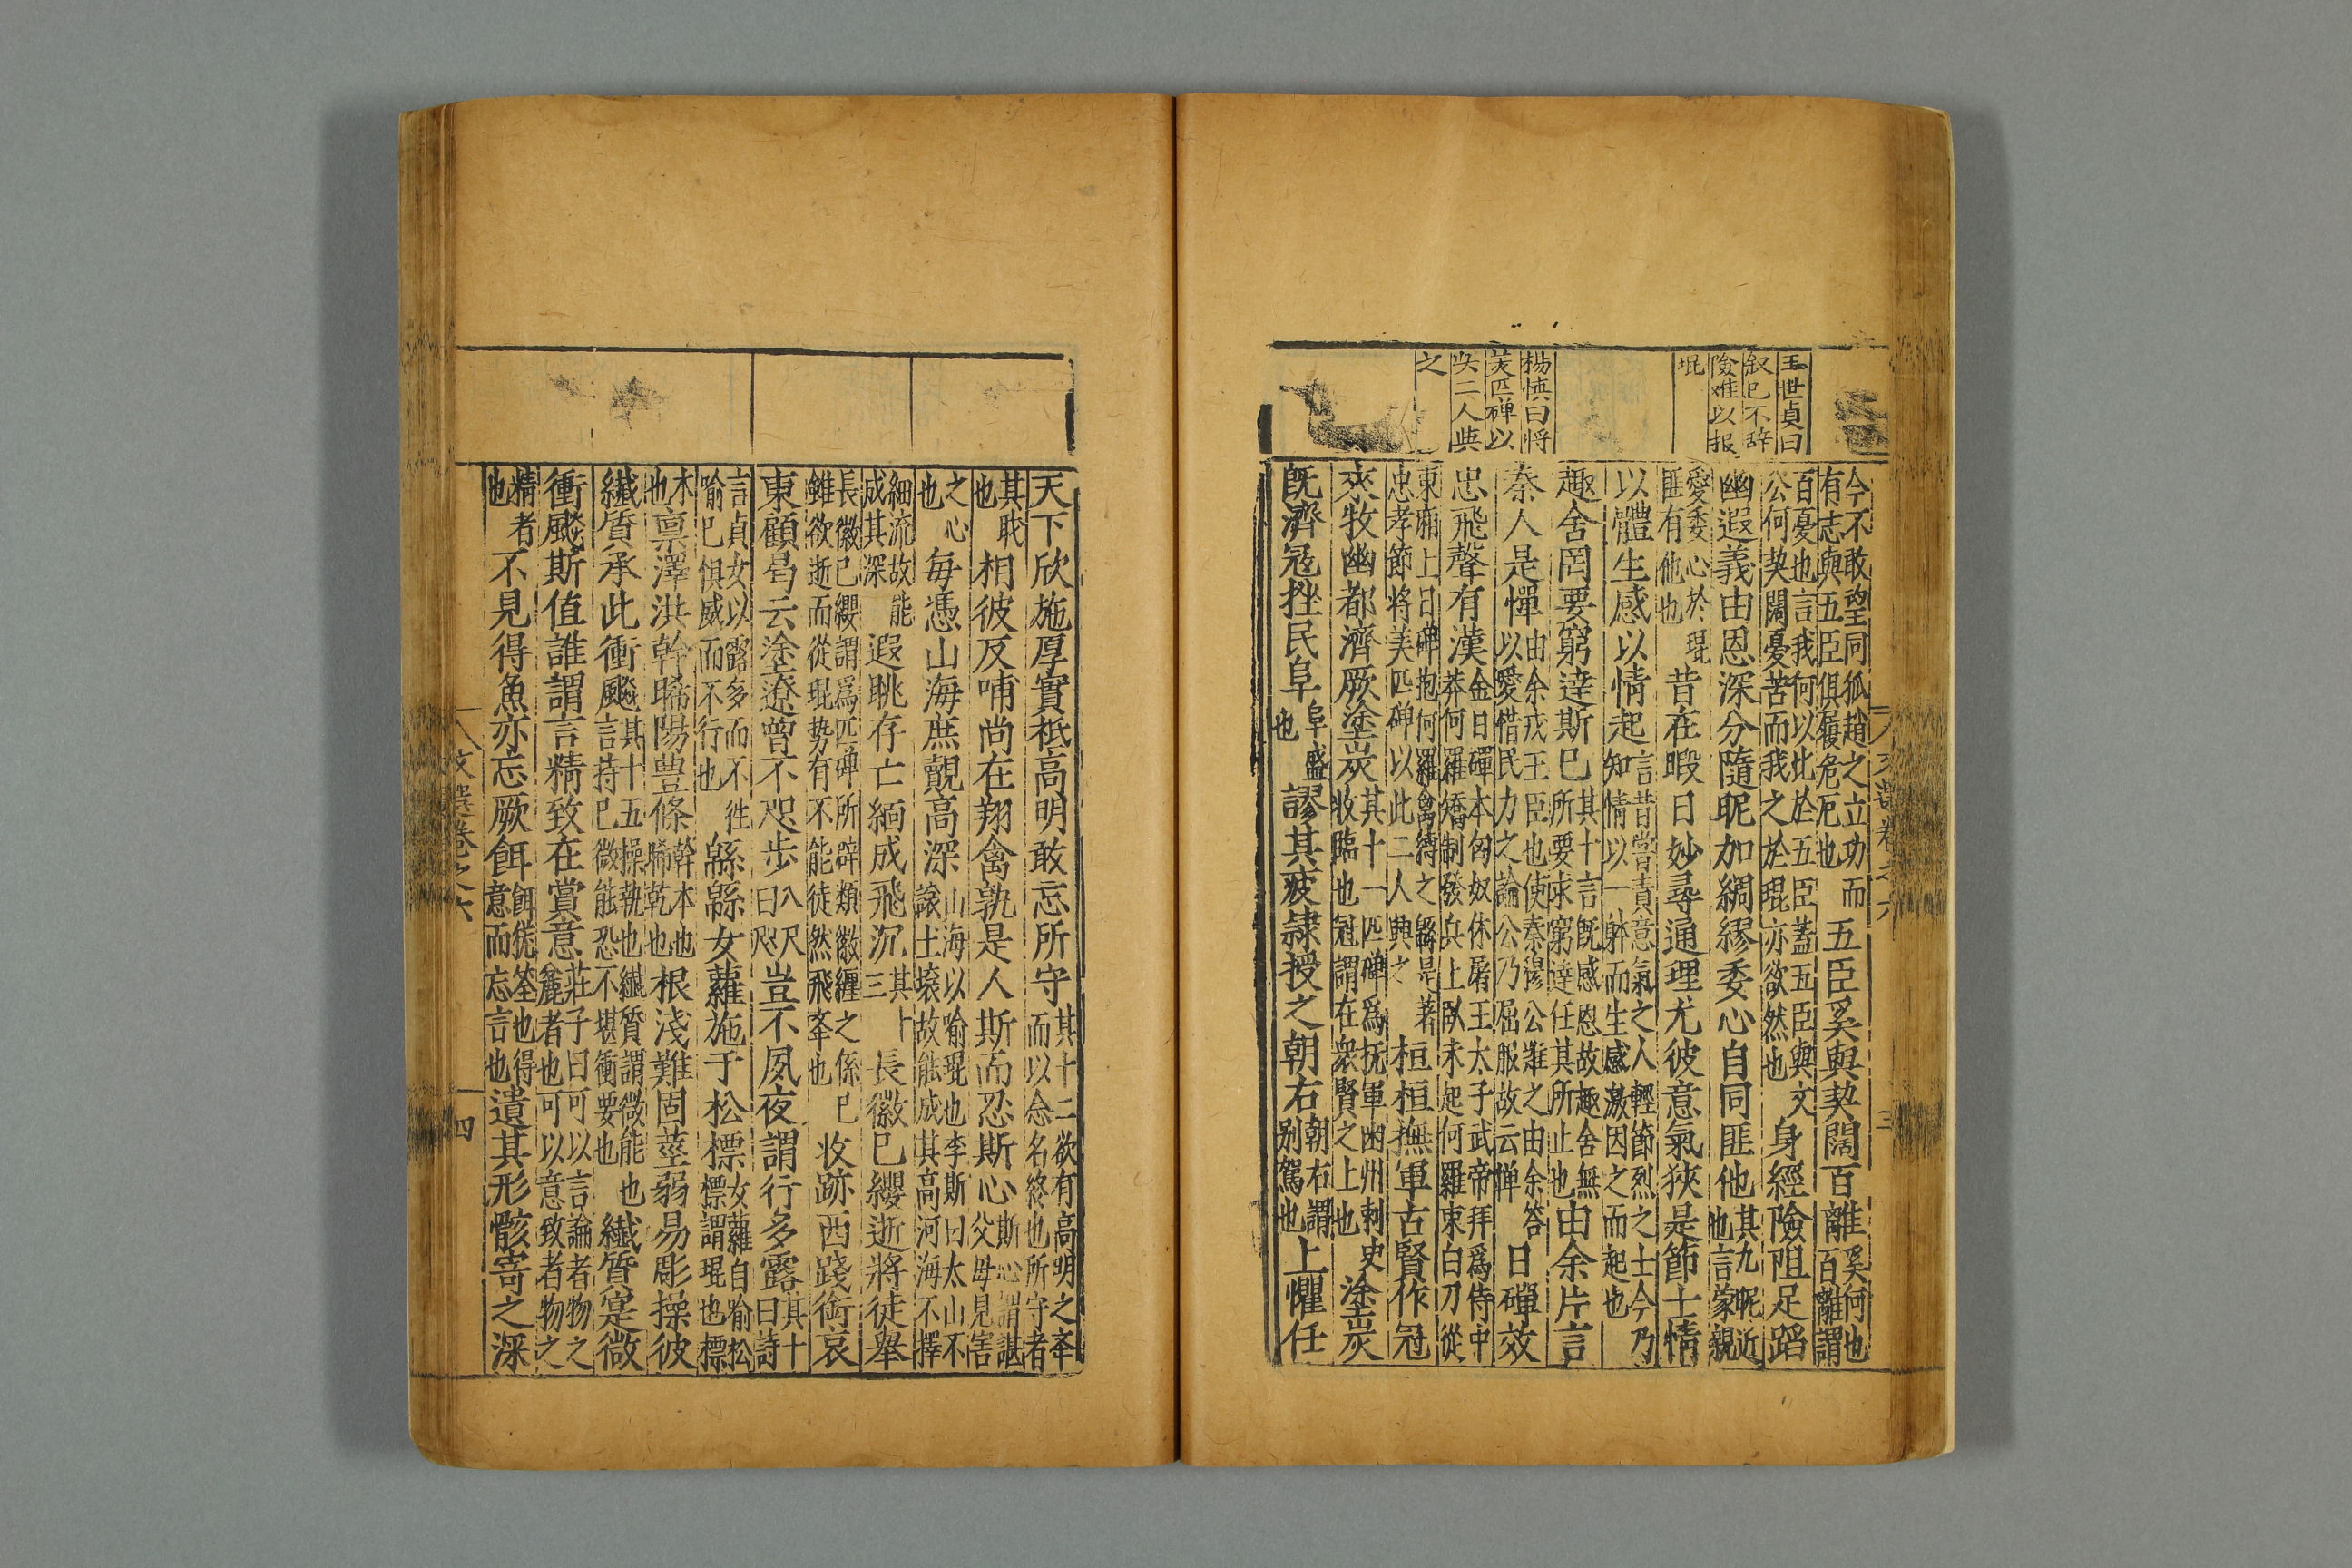 王世貞曰
叙己不辞
險难以报
琨
楊慎曰将
美匹磾以
吳二人典
之
今不敢望同狐趙之立功而
有志與五臣俱履危厄也
五臣奚與契闊百離
奚何也
百離謂
百憂也言我何以比於五臣蓋五臣與文
公何契闊憂苦而我之於琨亦欲然也
身經險阻足蹈
幽遐義由恩深分隨昵加綢繆委心自同匪他
其九昵近
也言蒙親
愛委心於琨
匪有他也
昔在暇日妙尋通理尤彼意氣狹是節士情
以體生感以情起
言昔嘗責意氣之人輕節烈之士今乃
知情以一躰而生感激因之而起也
趣舍罔要窮達斯已
其十言旣感恩故趣舍無
所要求窮達任其所止也
由余片言
秦人是憚
由余戎王臣也使秦穆公難之由余答
以愛惜民力之論公乃屈服故云憚
日磾效
忠飛聲有漢
金日磾本匈奴休屠王太子武帝拜爲侍中
莽何羅矯制發兵上臥未起何羅東白刀從
東廂上日磾抱何羅禽縛之繇是著
忠孝節将美匹磾以此二人興之
桓桓撫軍古賢作冠
來牧幽都濟厥塗炭
其十一匹磾爲抚軍幽州刺史
牧臨也冠謂在衆賢之上也
塗炭
旣濟冦挫民阜
阜盛
也
謬其疲隷授之朝右
朝右謂
别駕也
上懼任
文選卷之六
三
天下欣施厚實衹高明敢忘所守
其十二欲有高明之奉
而以念名終也所守者
其耿
也
相彼反哺尚在翔禽孰是人斯而忍斯心
斯心謂諶
父母見害
之心
也
毎憑山海庶覿高深
山海以喻琨也李斯曰太山不
讓土壤故能成其高河海不擇
細流故能
成其深
遐眺存亡緬成飛沉
其十
三
長徽已纓逝將徒舉
長徽已纓謂爲匹磾所辟類徽纆之係已
雖欲逝而從琨势有不能徒然飛奉也
收跡西踐銜哀
東顧曷云塗遼曾不咫步
八尺
曰咫
豈不夙夜謂行多露
其十
曰詩
言貞女以露多而不徃
喻已惧威而不行也
緜緜女蘿施于松標
女蘿自喻松
標謂琨也標
木
也
禀澤洪幹晞陽豊條
幹本也
晞乾也
根淺難固莖弱易彫操彼
纎質承此衝飈
其十五操執也纎質謂微能也
言持已微能恐不堪衝要也
纎質寔微
衝飈斯值誰謂言精致在賞意
莊子曰可以言論者物之
麄者也可以意致者物之
精者
也
不見得魚亦忘厥餌
餌犹筌也得
意而忘言也
遺其形骸寄之深
文選卷之六
四